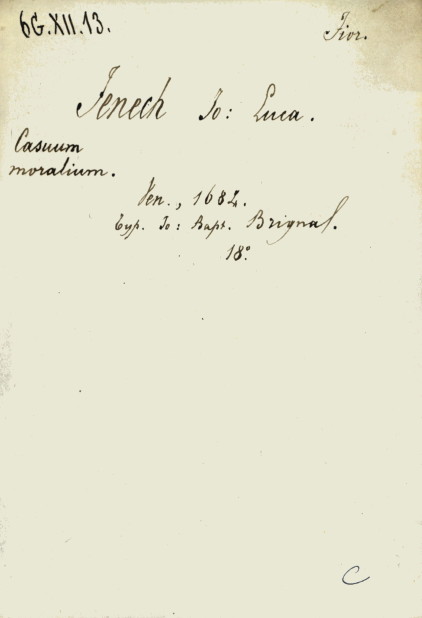 6G.XII.13.
Fior.
Fenech Io: Luca.
Casuum
moralium.
Ven., 1682.
Typ. Io: Bapt. Brignal.
18°.
C